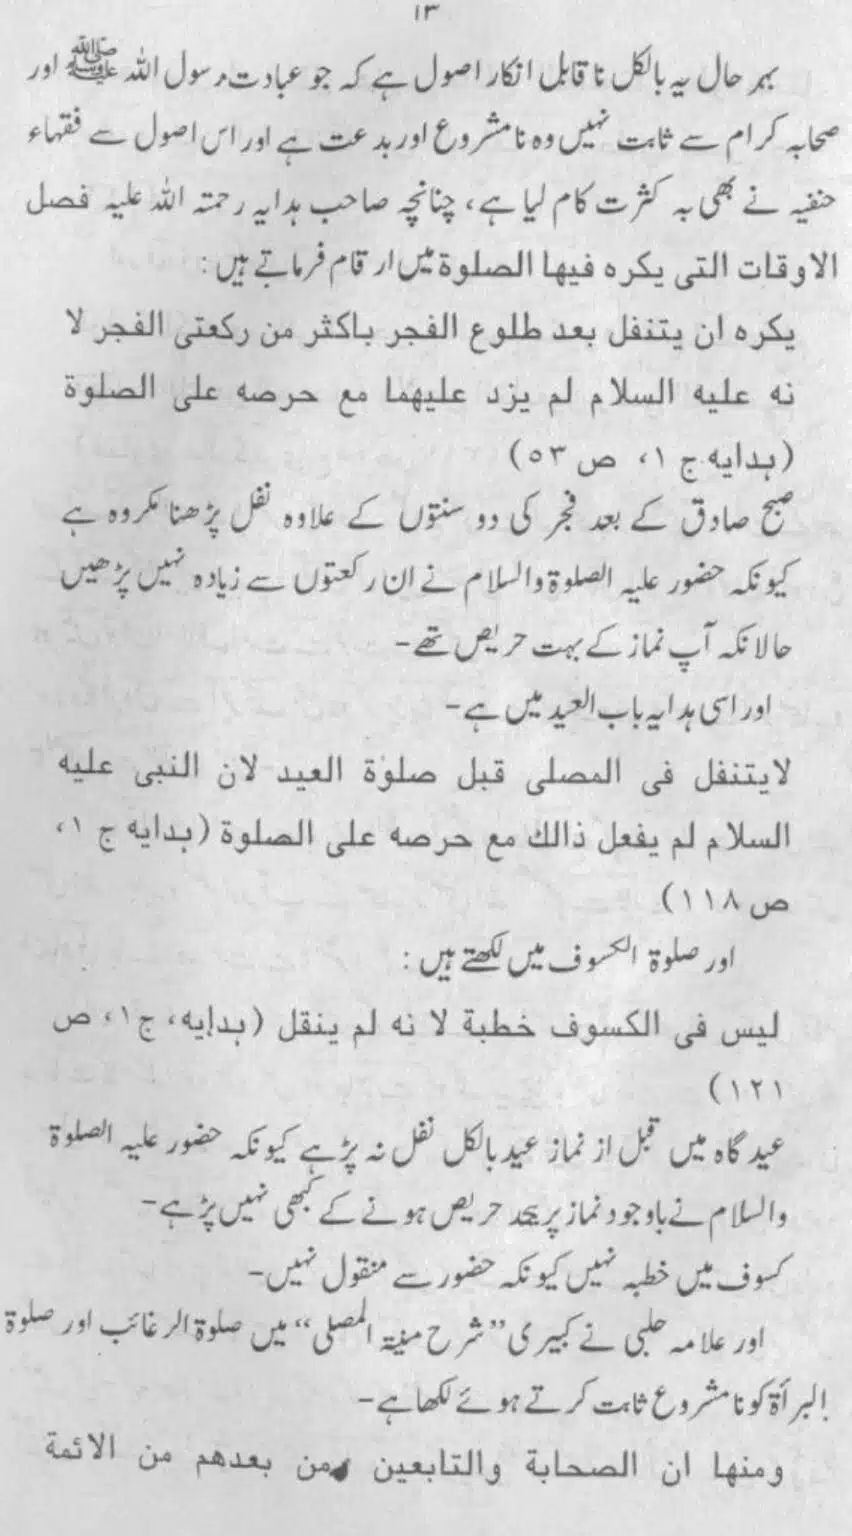 ۱۳
بہر حال یہ بالکل ناقابل انکار اصول ہے کہ جو عبادت رسول اللہ ﷺ اور
صحابہ کرام سے ثابت نہیں وہ نامشروع اور بدعت ہے اور اس اصول سے فقہاء
حنفیہ نے بھی بہ کثرت کام لیا ہے، چنانچہ صاحب ہدایہ رحمتہ اللہ علیہ فصل
الاوقات التی یکره فیها الصلوة میں ارقام فرماتے ہیں:
یکره ان یتنفل بعد طلوع الفجر باکثر من رکعتی الفجر لا
نه علیه السلام لم یزد علیهما مع حرصه علی الصلوة
(ہدایه ج ۱، ص ۵۳)
صبح صادق کے بعد فجر کی دو سنتوں کے علاوہ نفل پڑھنا مکروہ ہے
کیونکہ حضور علیہ الصلوۃ والسلام نے ان رکعتوں سے زیادہ نہیں پڑھیں
حالانکہ آپ نماز کے بہت حریص تھے۔
اور اسی ہدایہ باب العید میں ہے۔
لایتنفل فی المصلی قبل صلوٰة العید لان النبی علیه
السلام لم یفعل ذالك مع حرصه علی الصلوة (ہدایه ج ۱،
ص ۱۱۸)
اور صلوۃ الکسوف میں لکھتے ہیں:
لیس فی الکسوف خطبة لا نه لم ینقل (ہدایه، ج۱، ص
۱۲۱)
عید گاہ میں قبل از نماز عید بالکل نفل نہ پڑہے کیونکہ حضور علیہ الصلوۃ
والسلام نے باوجود نماز پر بیحد حریص ہونے کے کبھی نہیں پڑہے۔
کسوف میں خطبہ نہیں کیونکہ حضور سے منقول نہیں۔
اور علامہ حلبی نے کبیری ”شرح منیۃ المصلی“ میں صلوۃ الرغائب اور صلوۃ
البرأۃ کو نامشروع ثابت کرتے ہوئے لکھا ہے۔
ومنها ان الصحابة والتابعین ومن بعدهم من الائمة